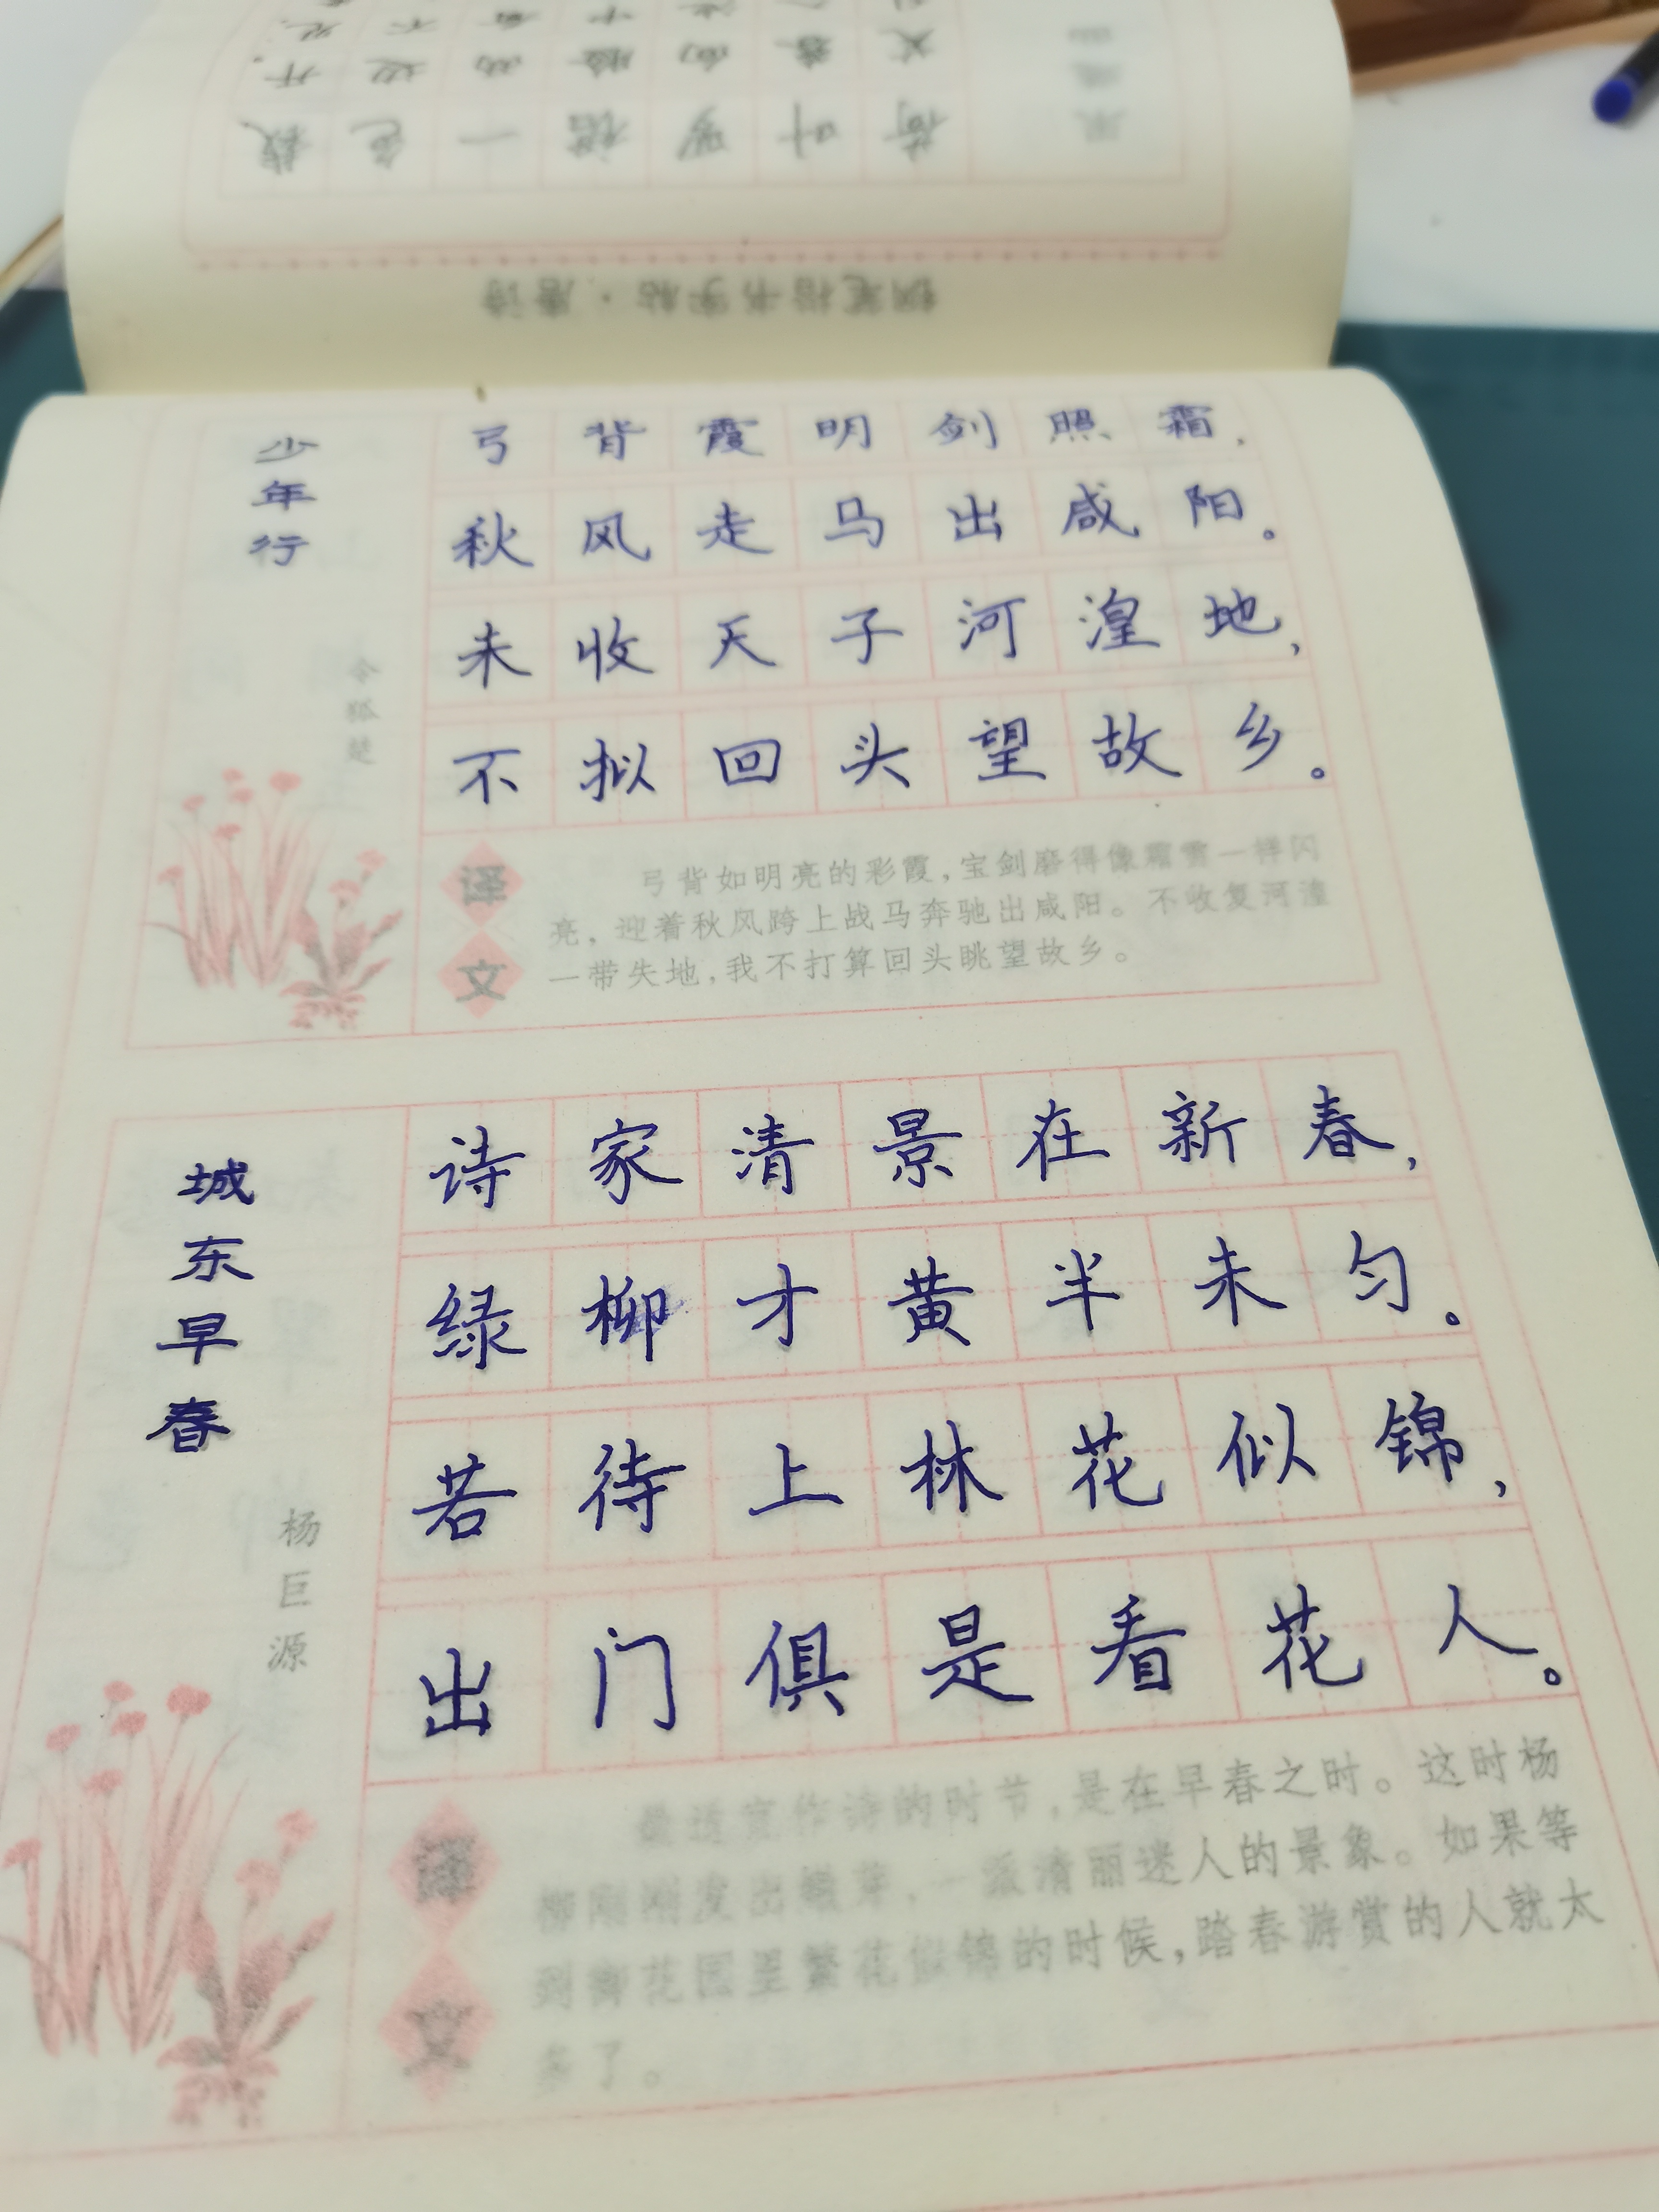 钢笔楷书字帖·唐诗
少年行
令狐楚
弓背霞明剑照霜，
秋风走马出咸阳。
未收天子河湟地，
不拟回头望故乡。
译文
弓背如明亮的彩霞，宝剑磨得像霜雪一样闪
亮，迎着秋风跨上战马奔驰出咸阳。不收复河湟
一带失地，我不打算回头眺望故乡。
城东早春
杨巨源
诗家清景在新春，
绿柳才黄半未匀。
若待上林花似锦，
出门俱是看花人。
译文
最适宜作诗的时节，是在早春之时。这时杨
柳刚刚发出嫩芽，一派清丽迷人的景象。如果等
到御花园里繁花似锦的时候，踏春游赏的人就太
多了。